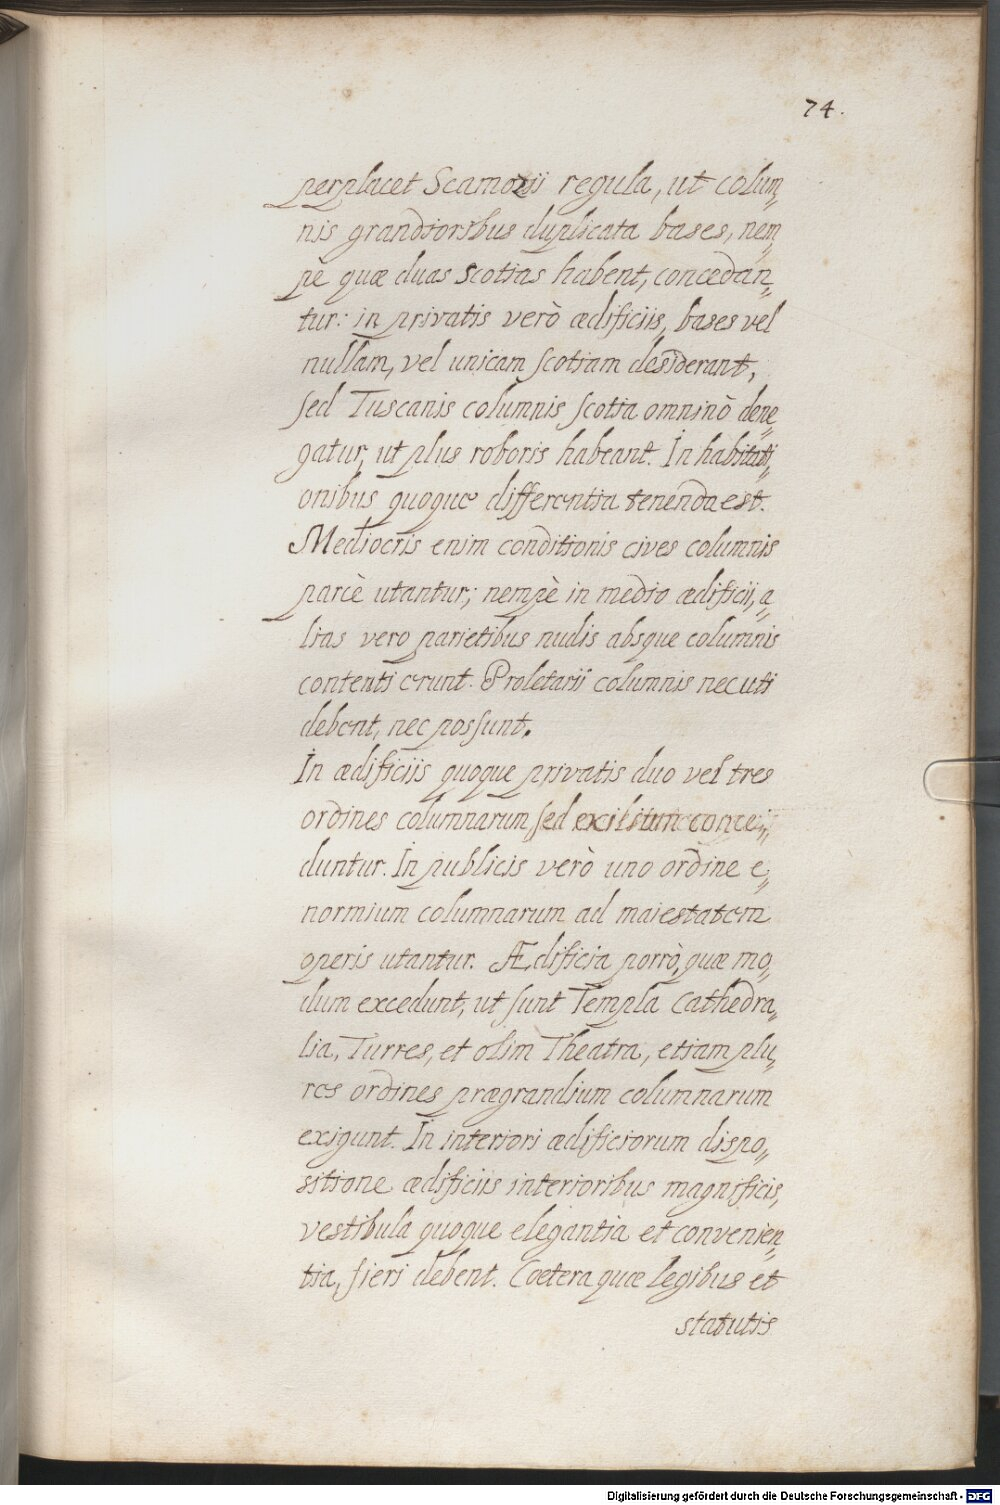 74.
perplacet Scamozii regula, ut colum„
nis grandioribus duplicata bases, nem„
pè quæ duas scotias habent, concedan„
tur: in privatis verò ædificiis, bases vel
nullam, vel unicam scotiam desiderant,
sed Tuscanis columnis scotia omninò dene„
gatur, ut plus roboris habeant. In habitati„
onibus quoque differentia tenenda est.
Mediocris enim conditionis cives columnis
parcè utantur; nempè in medio ædificii, a„
lias vero parietibus nudis absque columnis
contenti erunt. Proletarii columnis nec uti
debent, nec possunt.
In ædificiis quoque privatis duo vel tres
ordines columnarum sed exilium conce„
duntur. In publicis verò uno ordine e„
normium columnarum ad maiestatem
operis utantur. Ædificia porrò, quæ mo„
dum excedunt, ut sunt Templa Cathedra„
lia, Turres, et olim Theatra, etiam plu„
res ordines prægrandium columnarum
exigunt. In interiori ædificiorum dispo„
sitione ædificiis interioribus magnificis,
vestibula quoque elegantia et convenien„
tia, fieri debent. Cœtera quæ legibus et
statutis
Digitalisierung gefördert durch die Deutsche Forschungsgemeinschaft - DFG